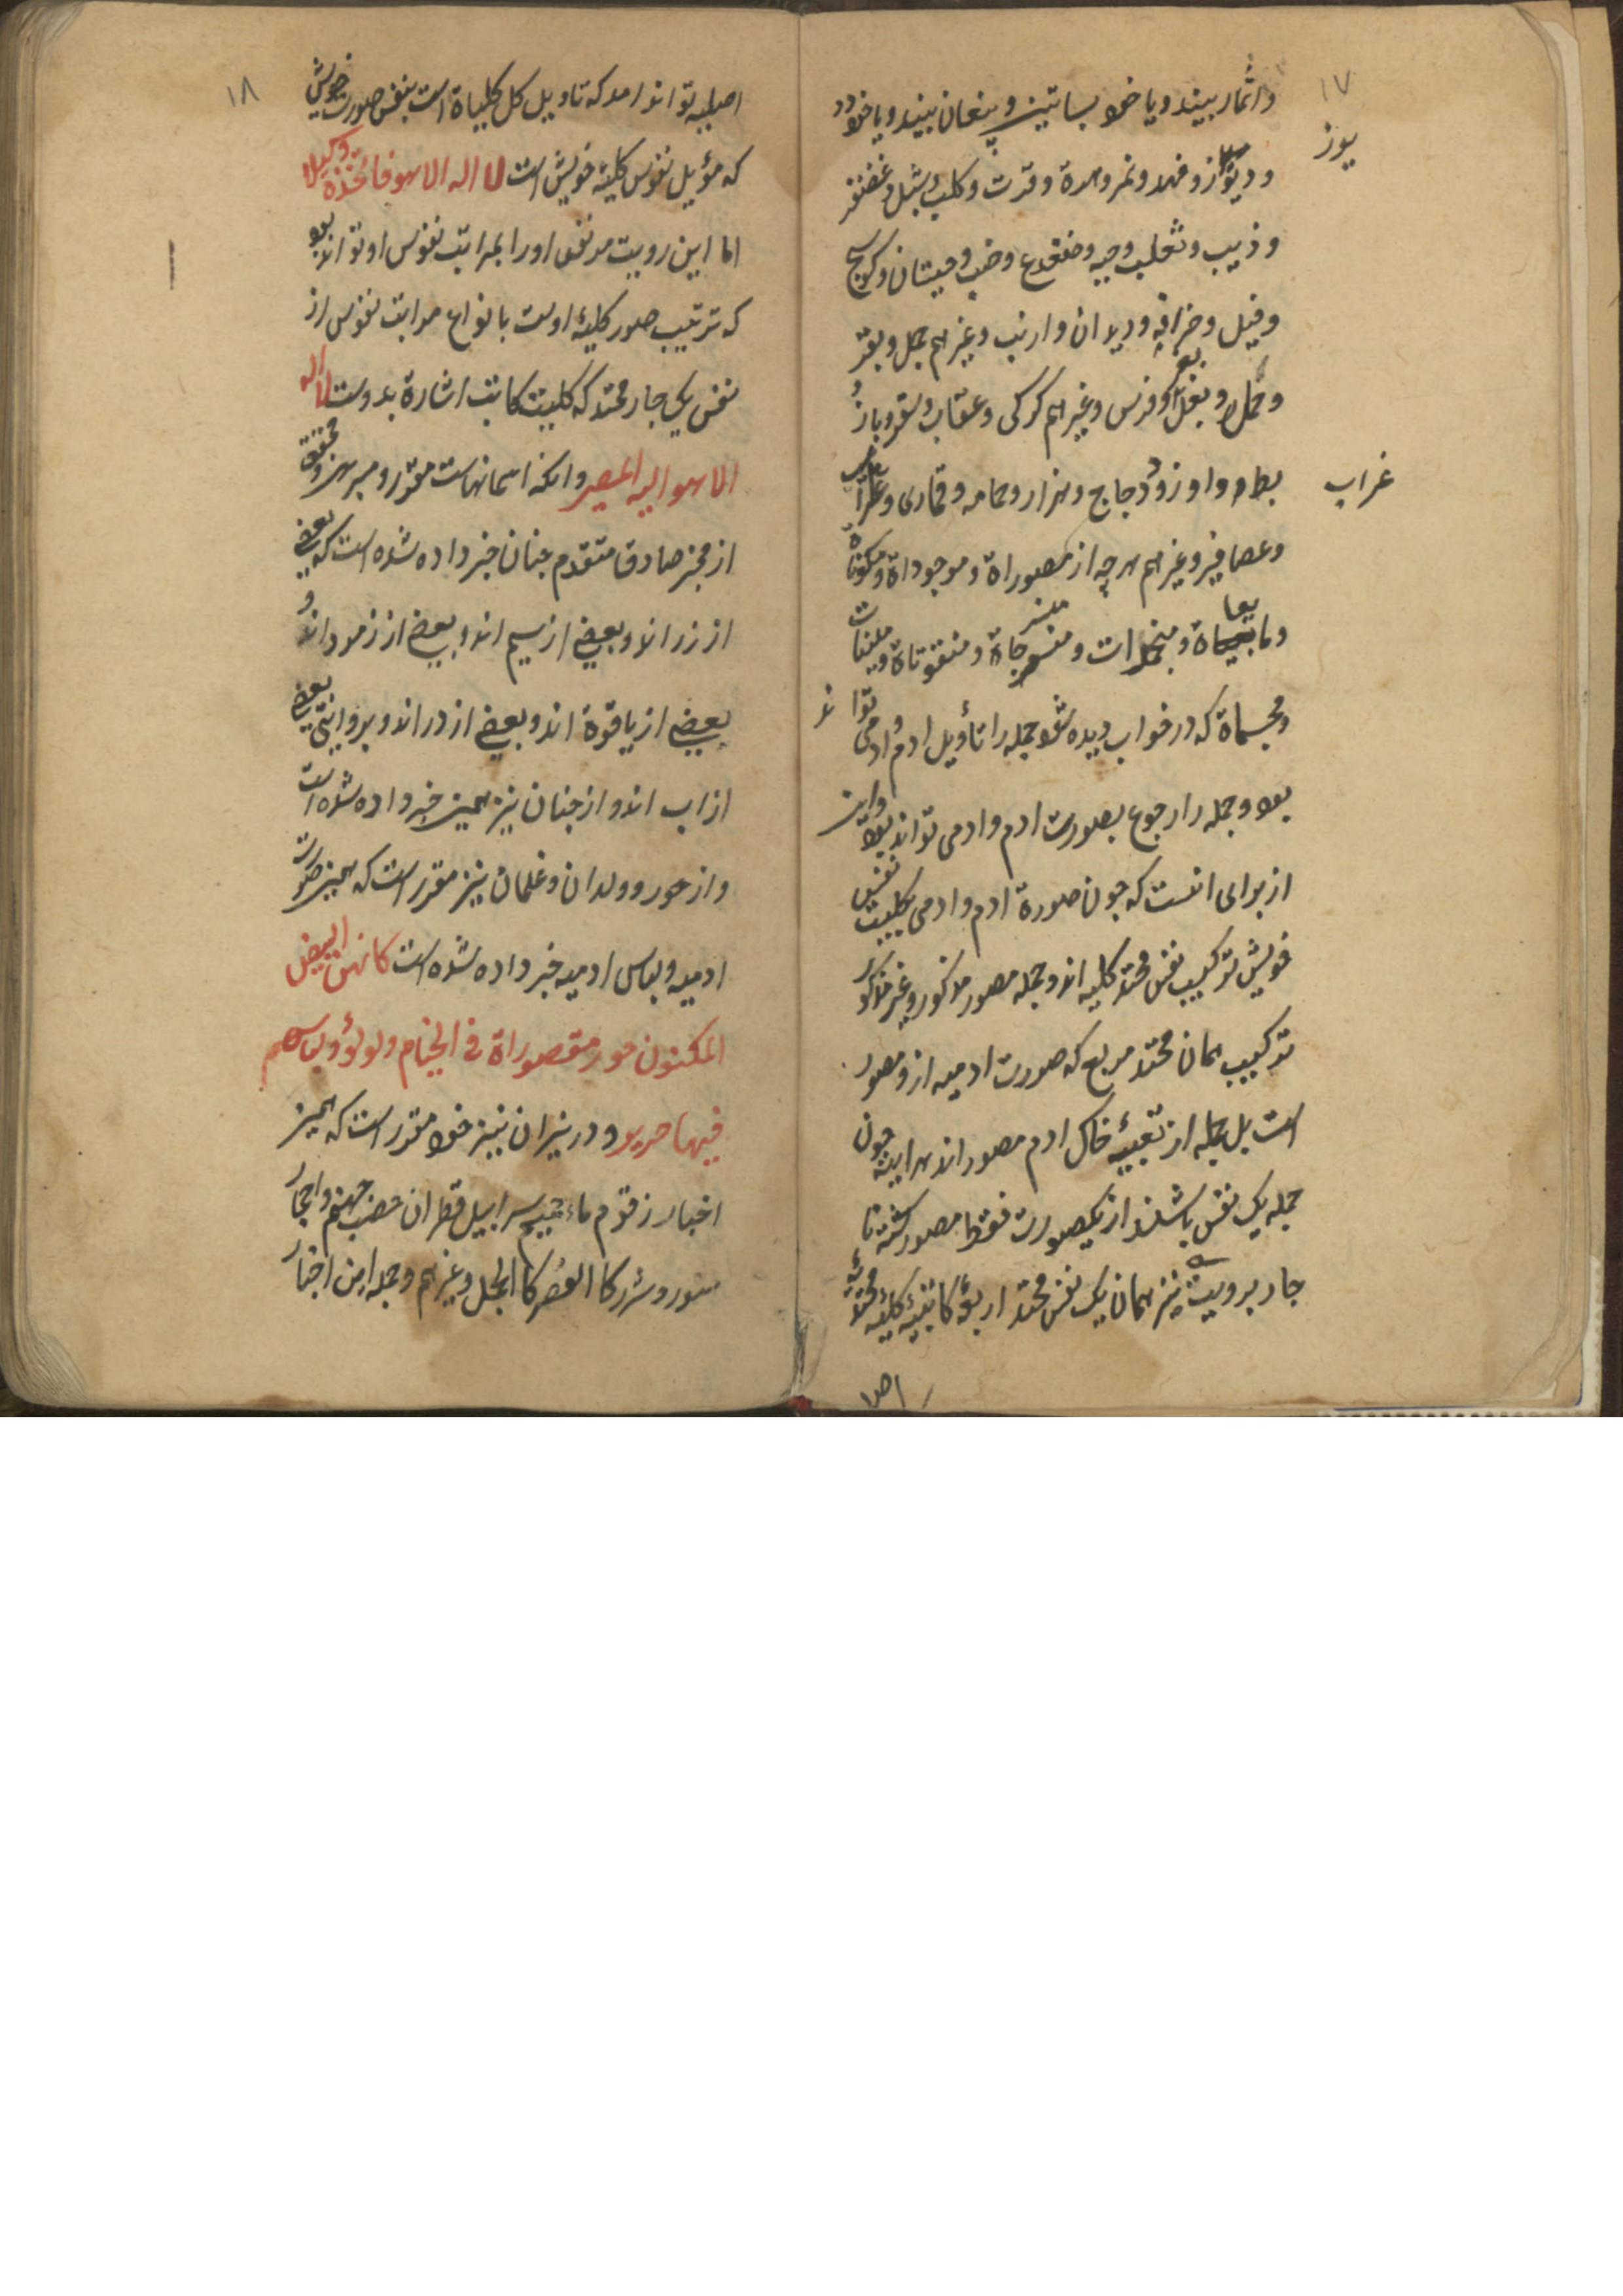 ۱۷
واثمار بیند و یا خود بساتین و پنغان بیند و یا خود
یوز
و دیو از و فهد و نمر و هرة و قدرت و کلب و شبل و غضنفر
و ذییب و ثعلب و حیه و ضفدع و ضب و حیتان و کوسج
و فیل و خرافه و دیدان و ارنب و غیرهم جمل و بقر
و حمل و بغل و فرس و غیرهم کرکی و عقاب و سقر و باز و
غراب
بط و اوز و دجاج و هزار و حمامه و قماری و غراب
و عصافیر و غیرهم هرچه از مصوراة و موجوداة و مکوناة
و مایعاة و منجمدات و منسرجاة و منقوتاة و ملینات
و مجسماة که در خواب دیده شود جمله را تأویل ادم و ادمی تواند
بود و جمله را رجوع بصورت ادم و ادمی تواند بود و این
از برای انست که چون صورة ادم و ادمی بکلیت نفس
خویش ترکیب نفس محتد کلیه اند و جمله مصور مذکور و غیر مذکور
ترکیب همان محتد مربع که صورت ادمیه ازو مصور
است بل جمله از تعبیهٔ خاک ادم مصور اند هر اینه چون
جمله یک نفس باشند از یکصورت فقط مصور کشته تا
چار برویت نیز همان یک نفس محتد اربعهٔ کاتبیهٔ کلیهٔ محتدیهٔ
اص
۱۸
اصلیه تواند امد که تاویل کل کلیاة است بنفس صورت خویش
که مؤیل نفوس کلیهٔ خویش است لا اله الا هو فاتخذه وکیلا
اما این رویت مر نفس اورا بمراتب نفوس او تواند بود
که ترتیب صور کلیهٔ اوست بانواع مراتب نفوس از
نفس یکی چار محتد که کلیت کاتب اشارة بدوست لا اله
الا هو الیه المصیر وانکه اسمانهاست مقرر و مبرهن و محقق
از مخبر صادق متقدم چنان خبر داده شده است که بعضی
از زر اند و بعضی از سیم اند و بعضی از زمرد اند و
بعضی از یاقوة اند و بعضی از در اند و بروایتی بعضی
از اب اند و از جنان نیز همین خبر داده شده است
و از حور و ولدان و غلمان نیز مقرر است که همین صورت
ادمیه و لباس ادمیه خبر داده شده است کانهن البیض
المکنون حور مقصوراة فی الخیام و لولؤ و لباسهم
فیها حریر و در نیران نیز خود مقرر است که همین
اخبار زقوم ماء حمیم سرابیل قطران حصب جهنم و احجار
سور و شرر کا القصر کا الجمل و غیرهم و جمله این اخبار